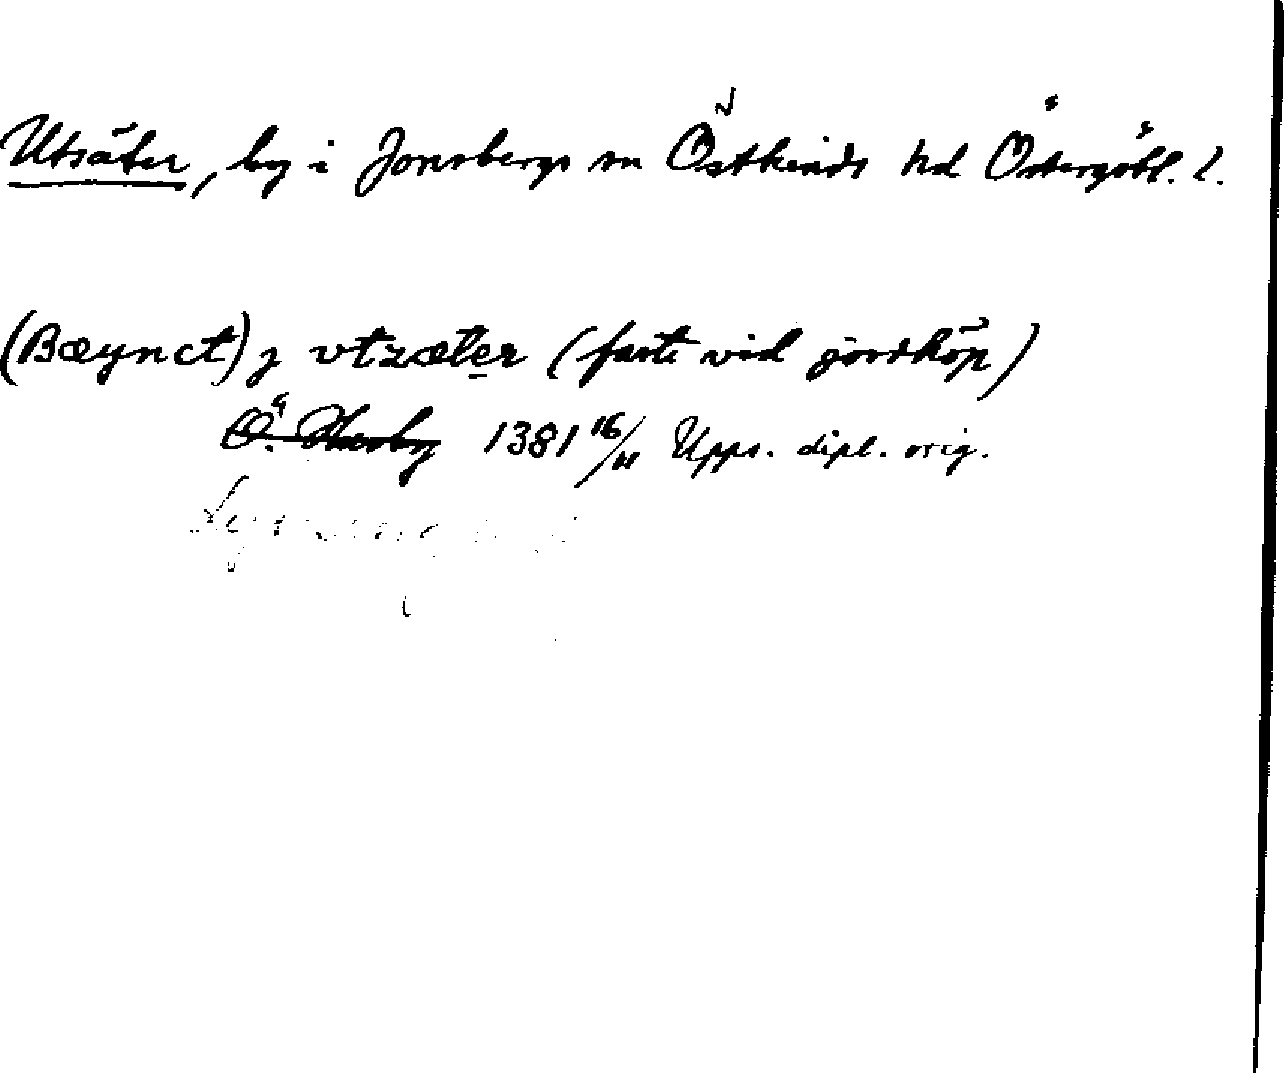 Utsäter, by i Jonsbergs sn Östkinds hd Östergötl. l.
(Bæynct) j vtzæter (faste vid jordköp)
Ö. 1381 16/11 Upps. dipl. orig.